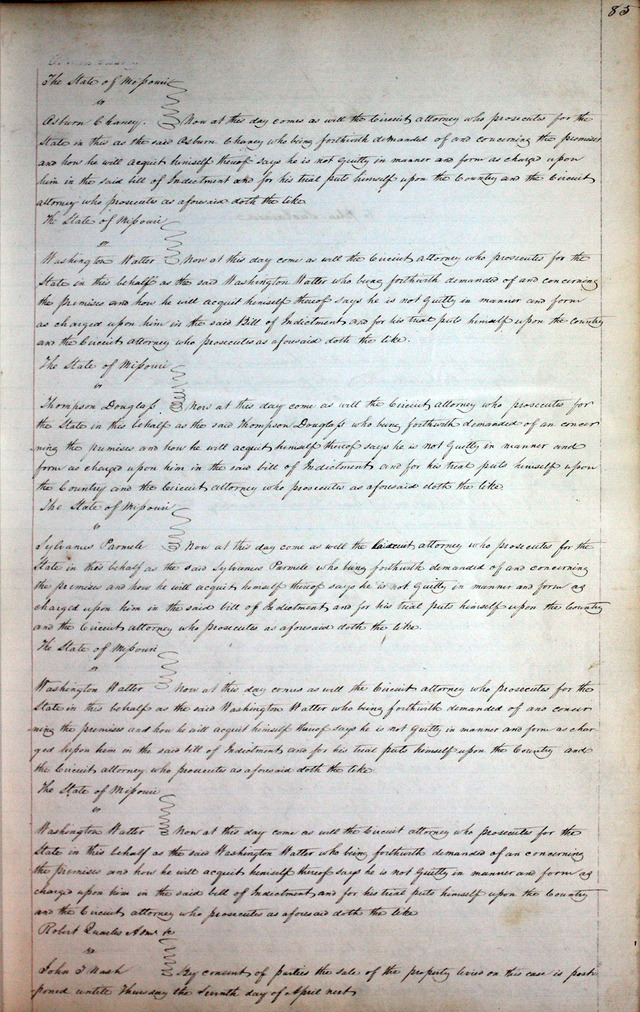 85
The State of Missouri
vs
Asburn Chaney. Now at this day comes as will the Circuit attorney who prosecutes for the
State in this as the said Asburn Chaney who being forthwith demanded of and concerning the premises
and how he will acquit himself thereof says he is not Guilty in manner and form as charged upon
him in the said bill of Indictment and for his trial puts himself upon the Country and the Circuit
attorney who prosecutes as aforesaid doth the like
The State of Missouri
vs
Washington Watter Now at this day come as will the Circuit Attorney who prosecutes for the
State in this behalf as the said Washington Watter who being forthwith demanded of and concerning
the premises and how he will acquit himself thereof says he is not Guilty in manner and form
as charged upon him in the said Bill of Indictment and for his trial puts himself upon the country
and the Circuit attorney who prosecutes as aforesaid doth the like.
The State of Missouri
vs
Thompson Douglass. Now at this day come as will the Circuit attorney who prosecutes for
the State in this behalf as the said Thompson Douglass who being forthwith demanded of an concer
ning the premises and how he will acquit himself thereof says he is not Guilty in manner and
form as charged upon him in the said bill of Indictment and for his trial puts himself upon
the Country and the Circuit attorney who prosecutes as aforesaid doth the like
The State of Missouri
vs
Sylvanus Parmele Now at this day come as will the attorney who prosecutes for the
State in this behalf as the said Sylvanus Parmele who being forthwith demanded of and concerning
the premises and how he will acquit himself thereof says he is not Guilty in manner and form as
charged upon him in the said bill of Indictment and for his trial puts himself upon the Country
and the Circuit attorney who prosecutes as aforesaid doth the like.
The State of Missouri
vs
Washington Watter Now at this day comes as will the Circuit attorney who prosecutes for the
State in this behalf as the said Washington Watter who being forthwith demanded of and concer
ning the premises and how he will acquit himself thereof says he is not Guilty in manner and form as char
ged upon him in the said bill of Indictment and for his trial puts himself upon the Country and
the Circuit attorney who prosecutes as aforesaid doth the like
The State of Missouri
vs
Washington Watter Now at this day come as will the Circuit attorney who prosecutes for the
State in this behalf as the said Washington Watter who being forthwith demanded of an concerning
the premises and how he will acquit himself thereof says he is not Guilty in manner and form as
charged upon him in the said bill of Indictment and for his trial puts himself upon the Country
and the Circuit attorney who prosecutes as aforesaid doth the like
Robert Quarles Adm &c
vs
John T Nash By consent of parties the sale of the property levied on this case is post
poned untill Thursday the Seventh day of April next